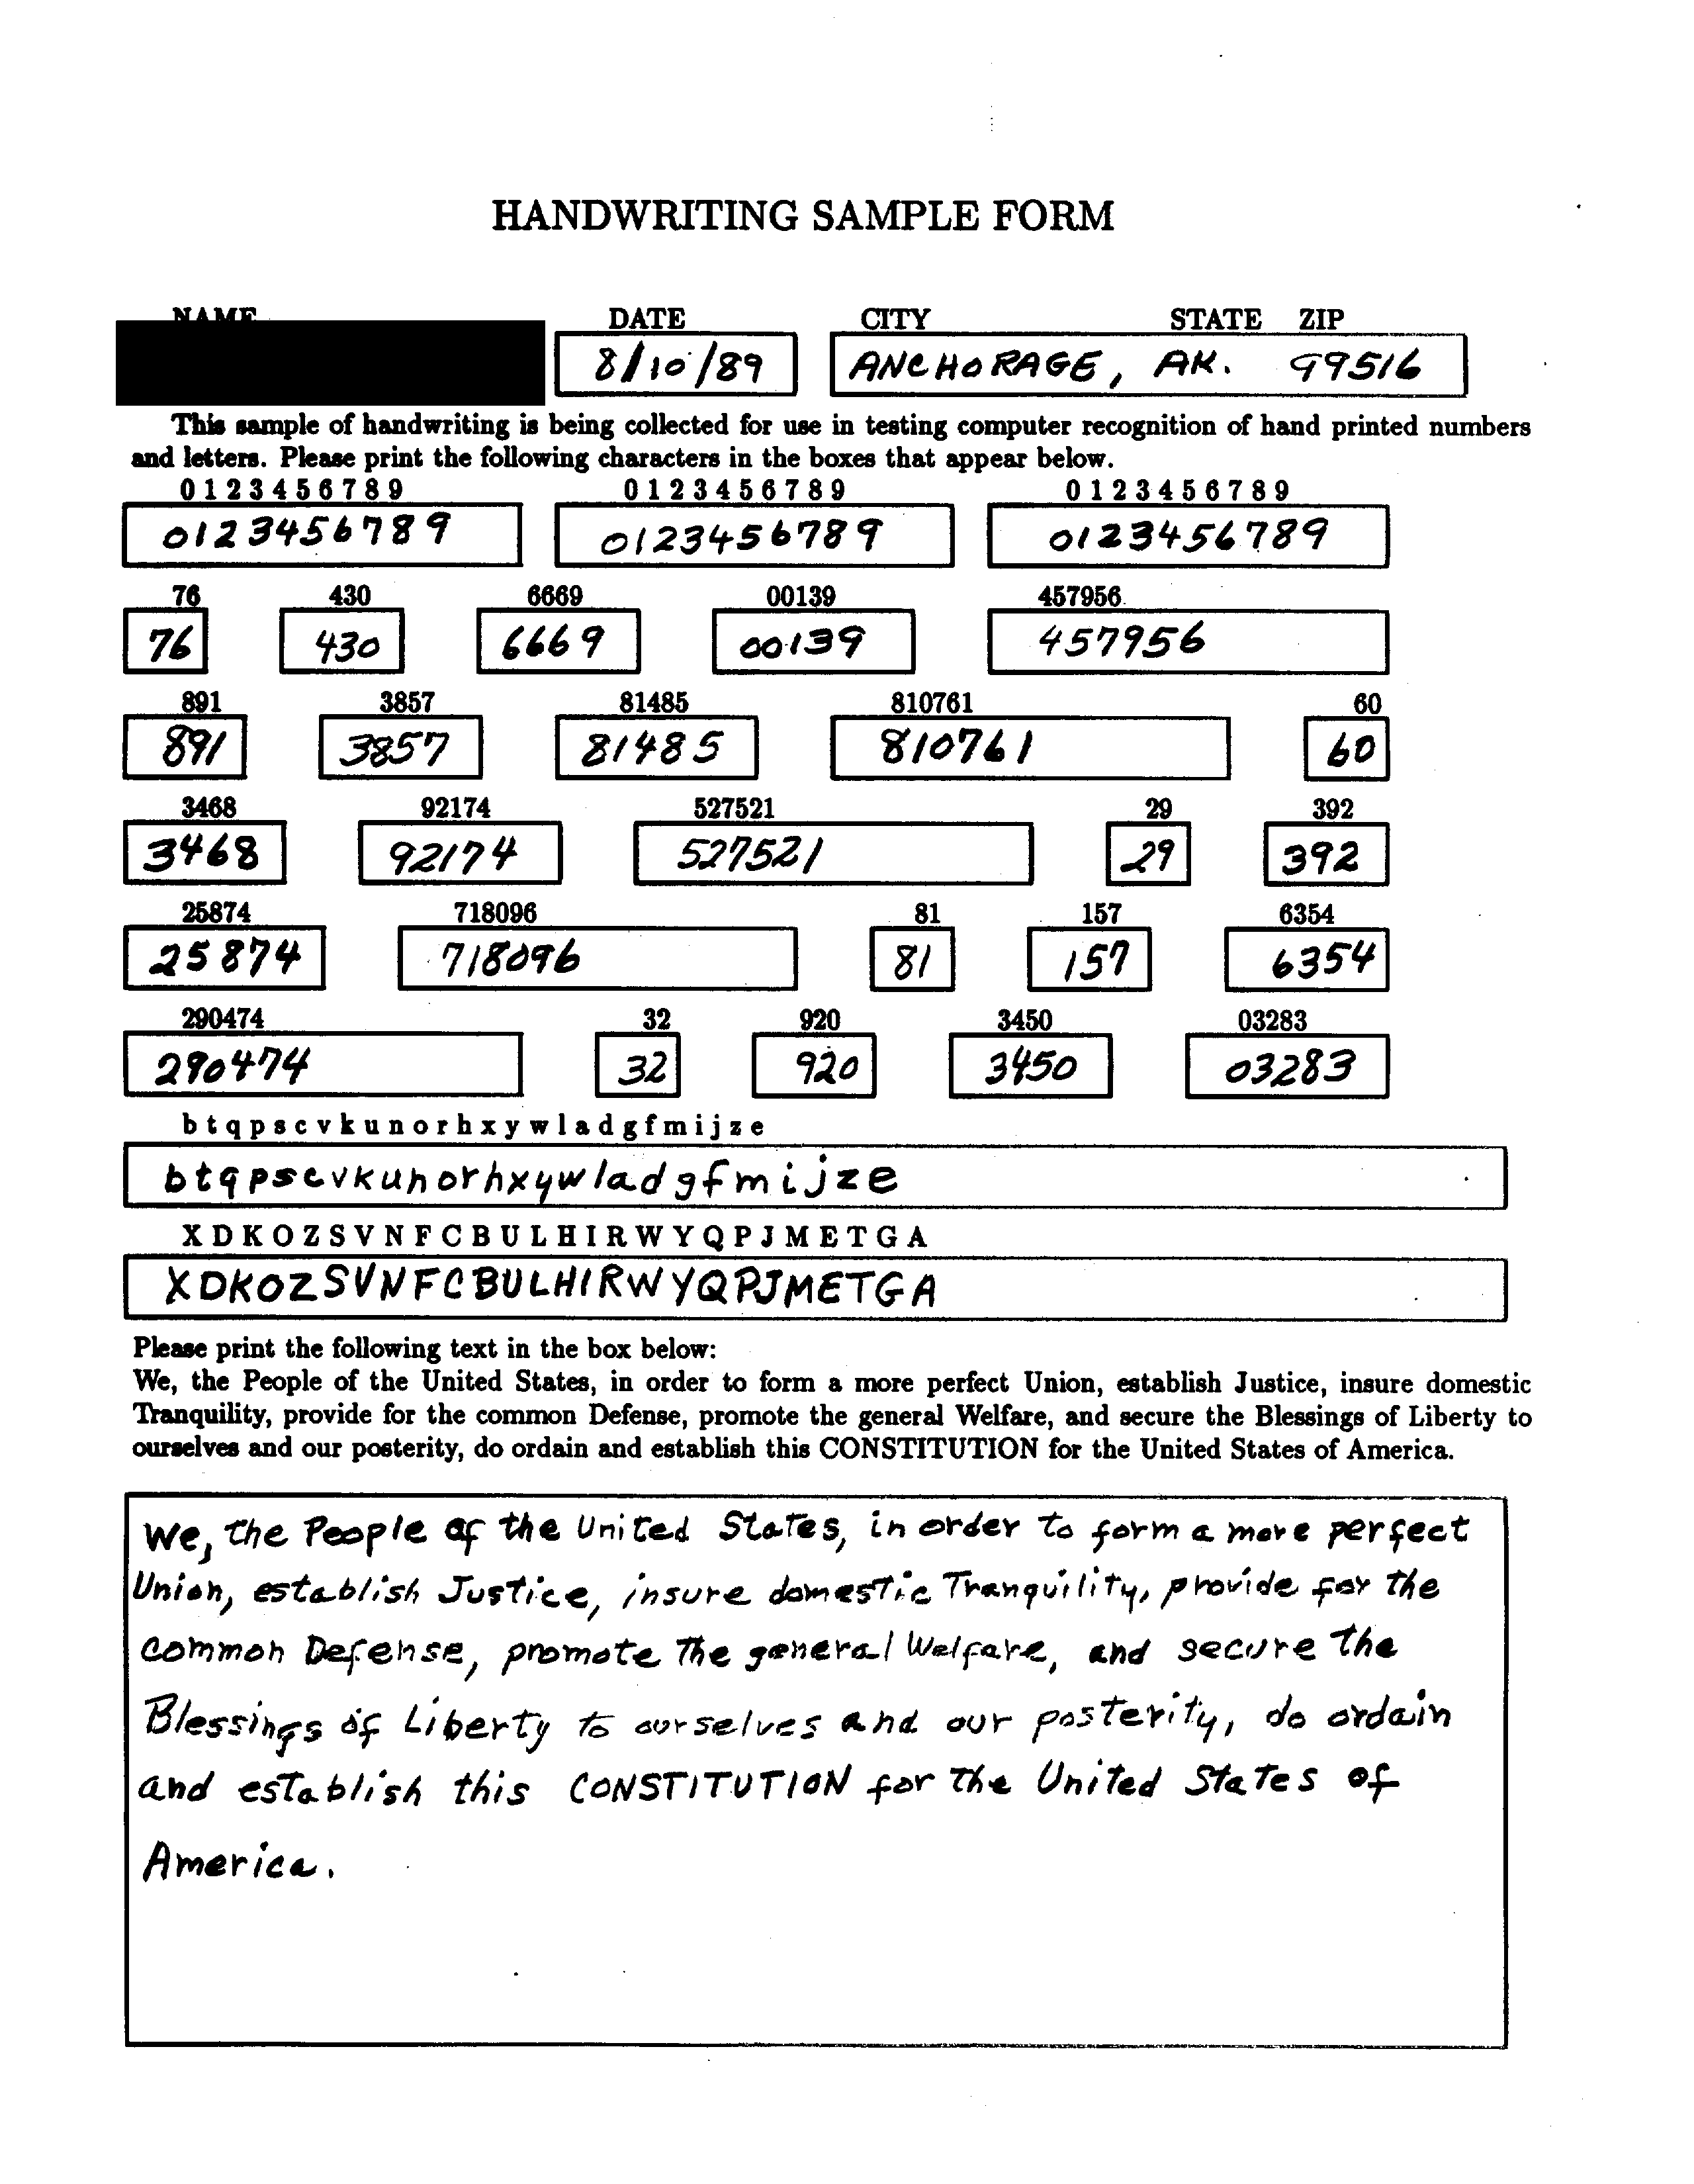 HANDWRITING SAMPLE FORM
NAME DATE CITY STATE ZIP
8/10/89 ANCHORAGE, AK. 99516
This sample of handwriting is being collected for use in testing computer recognition of hand printed numbers
and letters. Please print the following characters in the boxes that appear below.
0 1 2 3 4 5 6 7 8 9 0 1 2 3 4 5 6 7 8 9 0 1 2 3 4 5 6 7 8 9
0123456789 0123456789 0123456789
76 430 6669 00139 457956
76 430 6669 00139 457956
891 3857 81485 810761 60
891 3857 81485 810761 60
3468 92174 527521 29 392
3468 92174 527521 29 392
25874 718096 81 157 6354
25874 718096 81 157 6354
290474 32 920 3450 03283
290474 32 920 3450 03283
b t q p s c v k u n o r h x y w l a d g f m i j z e
btqpscvkunorhxywladgfmijze
X D K O Z S V N F C B U L H I R W Y Q P J M E T G A
XDKOZSVNFCBULHIRWYQPJMETGA
Please print the following text in the box below:
We, the People of the United States, in order to form a more perfect Union, establish Justice, insure domestic
Tranquility, provide for the common Defense, promote the general Welfare, and secure the Blessings of Liberty to
ourselves and our posterity, do ordain and establish this CONSTITUTION for the United States of America.
We, the People of the United States, in order to form a more perfect
Union, establish Justice, insure domestic Tranquility, provide for the
common Defense, promote the general Welfare, and secure the
Blessings of Liberty to ourselves and our posterity, do ordain
and establish this CONSTITUTION for the United States of
America.